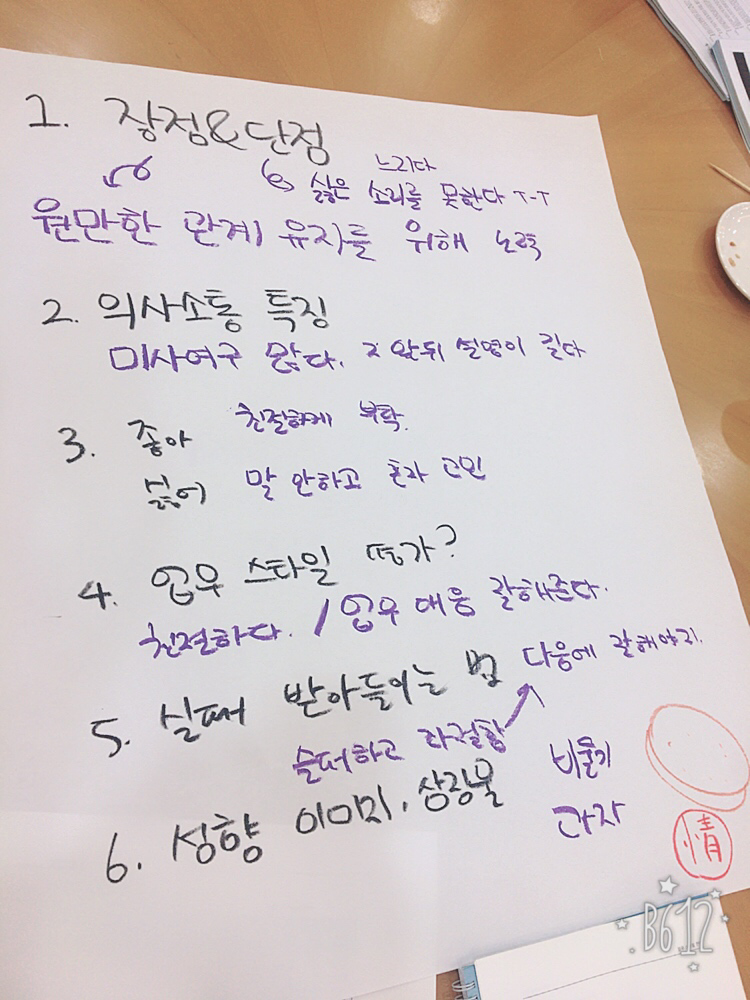 1. 장점&단점
느리다
싫은 소리를 못한다 T-T
원만한 관계 유지를 위해 노력
2. 의사소통 특징
미사여구 많다. 앞뒤 설명이 길다
3. 좋아 친절하게 부탁.
싫어 말 안하고 혼자 고민
4. 업무 스타일 평가?
친절하다. / 업무 대응 잘해준다.
5. 실패 받아들이는 법 다음에 잘해야지.
슬퍼하고 좌절함
6. 성향 이미지, 상징물
비둘기
과자
情
B612